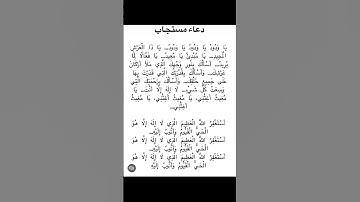 دعاء مستجاب
يَا وَدُودُ يَا وَدُودُ يَا وَدُودُ، يَا ذَا الْعَرْشِ
الْمَجِيدِ، يَا مُبْدِئُ يَا مُعِيدُ، يَا فَعَّالًا لِمَا
يُرِيدُ، أَسْأَلُكَ بِنُورِ وَجْهِكَ الَّذِي مَلَأَ أَرْكَانَ
عَرْشِكَ، وَأَسْأَلُكَ بِقُدْرَتِكَ الَّتِي قَدَرْتَ بِهَا
عَلَى جَمِيعِ خَلْقِكَ، وَأَسْأَلُكَ بِرَحْمَتِكَ الَّتِي
وَسِعَتْ كُلَّ شَيْءٍ، لَا إِلَهَ إِلَّا أَنْتَ، يَا
مُغِيثُ أَغِثْنِي، يَا مُغِيثُ أَغِثْنِي، يَا مُغِيثُ
أَغِثْنِي
أَسْتَغْفِرُ اللهَ الْعَظِيمَ الَّذِي لَا إِلَهَ إِلَّا هُوَ
الْحَيُّ الْقَيُّومُ وَأَتُوبُ إِلَيْهِ
أَسْتَغْفِرُ اللهَ الْعَظِيمَ الَّذِي لَا إِلَهَ إِلَّا هُوَ
الْحَيُّ الْقَيُّومُ وَأَتُوبُ إِلَيْهِ
أَسْتَغْفِرُ اللهَ الْعَظِيمَ الَّذِي لَا إِلَهَ إِلَّا هُوَ
الْحَيُّ الْقَيُّومُ وَأَتُوبُ إِلَيْهِ